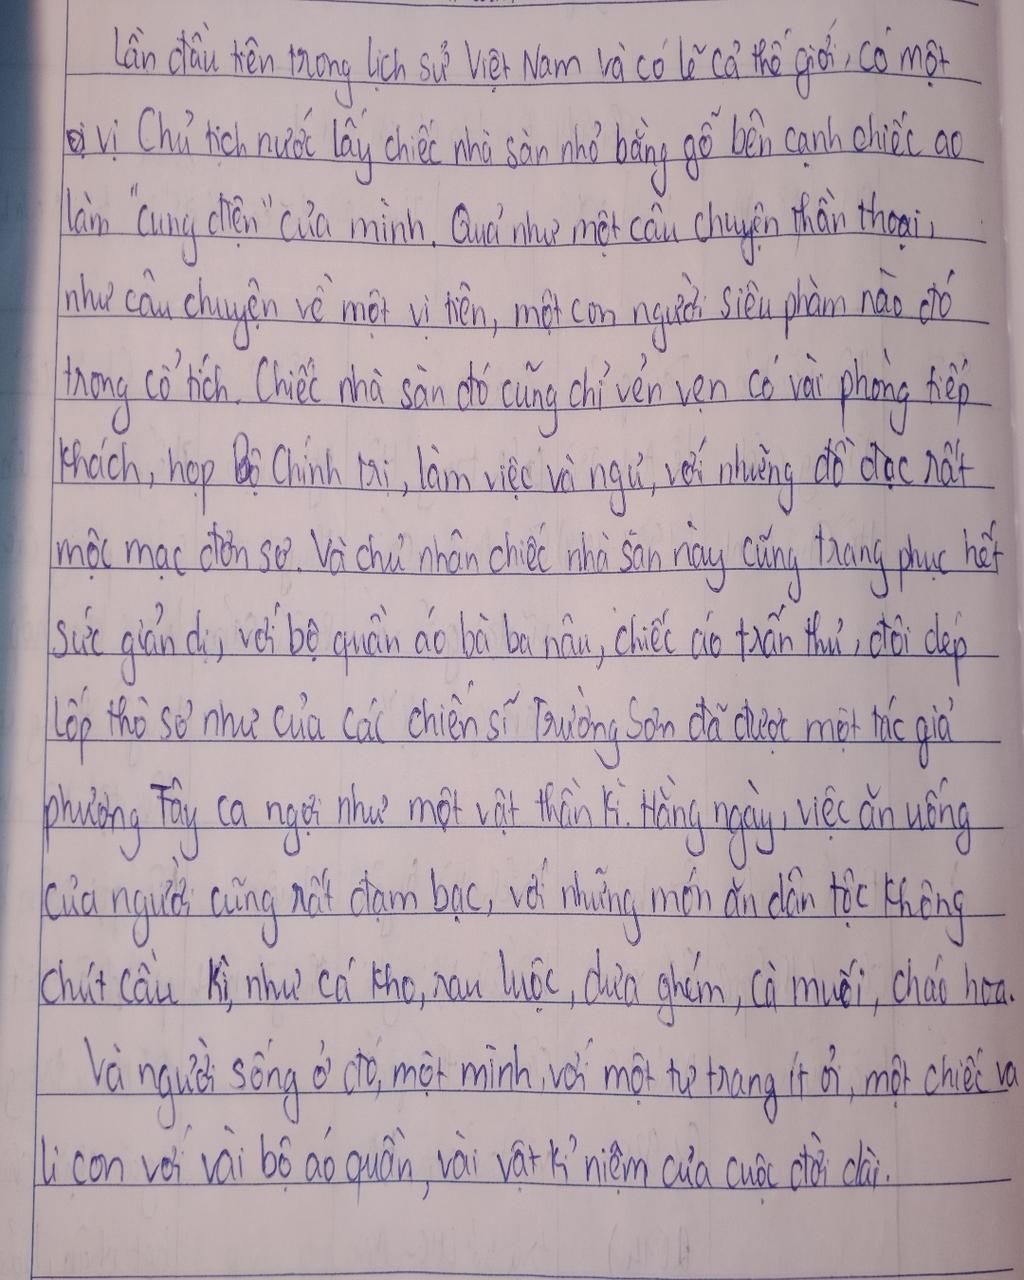 Lần đầu tiên trong lịch sử Việt Nam và có lẽ cả thế giới, có một
vị Chủ tịch nước lấy chiếc nhà sàn nhỏ bằng gỗ bên cạnh chiếc ao
làm "cung điện" của mình. Quả như một câu chuyện thần thoại,
như câu chuyện về một vị tiên, một con người siêu phàm nào đó
trong cổ tích. Chiếc nhà sàn đó cũng chỉ vẻn vẹn có vài phòng tiếp
khách, họp Bộ Chính trị, làm việc và ngủ, với những đồ đạc rất
mộc mạc đơn sơ. Và chủ nhân chiếc nhà sàn này cũng trang phục hết
sức giản dị, với bộ quần áo bà ba nâu, chiếc áo trấn thủ, đôi dép
lốp thô sơ như của các chiến sĩ Trường Sơn đã được một tác giả
phương Tây ca ngợi như một vật thần kì. Hằng ngày, việc ăn uống
của người cũng rất đạm bạc, với những món ăn dân tộc không
chút cầu kì, như cá kho, rau luộc, dưa ghém, cà muối, cháo hoa.
Và người sống ở đó, một mình, với một tư trang ít ỏi, một chiếc va
li con với vài bộ áo quần, vài vật kỉ niệm của cuộc đời dài.